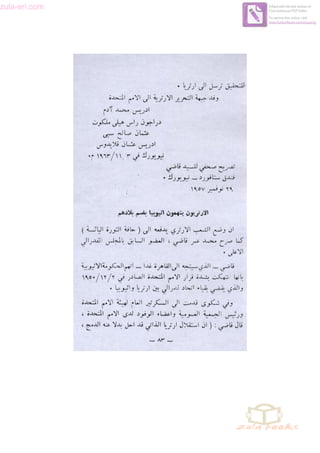 zula-eri.com
للتحقيق ترسل الى ارتريا .
وفد جبهة التحرير الارترية الى الامم المتحدة
ادريس محمد آدم
دراجون راس هيلي ملكوت
عثمان صالح سبي
ادريس عثمان قلايدوس
نيويورك في ٣ /١١/ ١٩٦٣م .
تصريح صحفي للسيد قاضي
فندق ستانفورد ــ نيويورك .
٢٩ نوفمبر ١٩٥٧
الارتريون يتهمون اثيوبيا بضم بلادهم
ان وضع الشعب الارتري يدفعه الى ( حافة الثورة اليائسة )
كما صرح محمد عمر قاضي ، العضو السابق بالمجلس الفدرالي
الاعلى .
قاضي ــ الذي سيتجه الى القاهرة غدا ــ اتهم الحكومة الاثيوبية
بانها انتهكت بشدة قرار الامم المتحدة الصادر في ١٩٥٠/١٢/٢
والذي يقضي بقيام اتحاد فدرالي بين ارتريا واثيوبيا .
وفي شكوى قدمت الى السكرتير العام لهيئة الامم المتحدة
ورئيس الجمعية العمومية واعضاء الوفود لدى الامم المتحدة ،
قال قاضي : ( ان استقلال ارتريا الذاتي قد احل بدلا عنه الدمج ،
ــ ٨٣ ــ
zula books